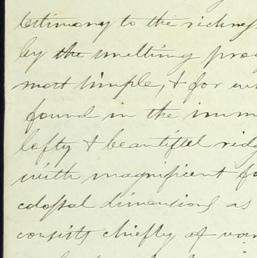 testimony to the richness
by the smelting pro
most simple, & for
found in the imm
lofty & beautiful rid
with magnificent fo
colossal dimensions as
consists chiefly of var